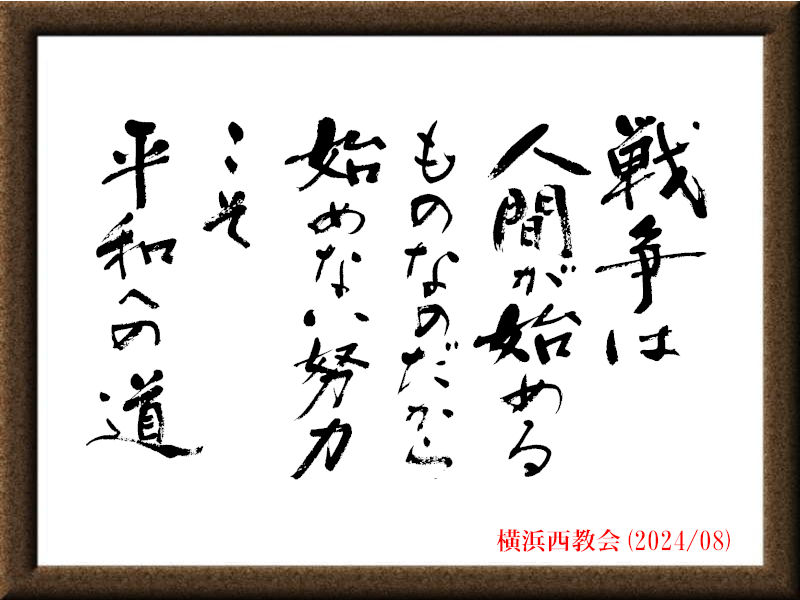 戦争は
人間が始める
ものなのだから
始めない努力
こそ
平和への道
横浜西教会 (2024/08)